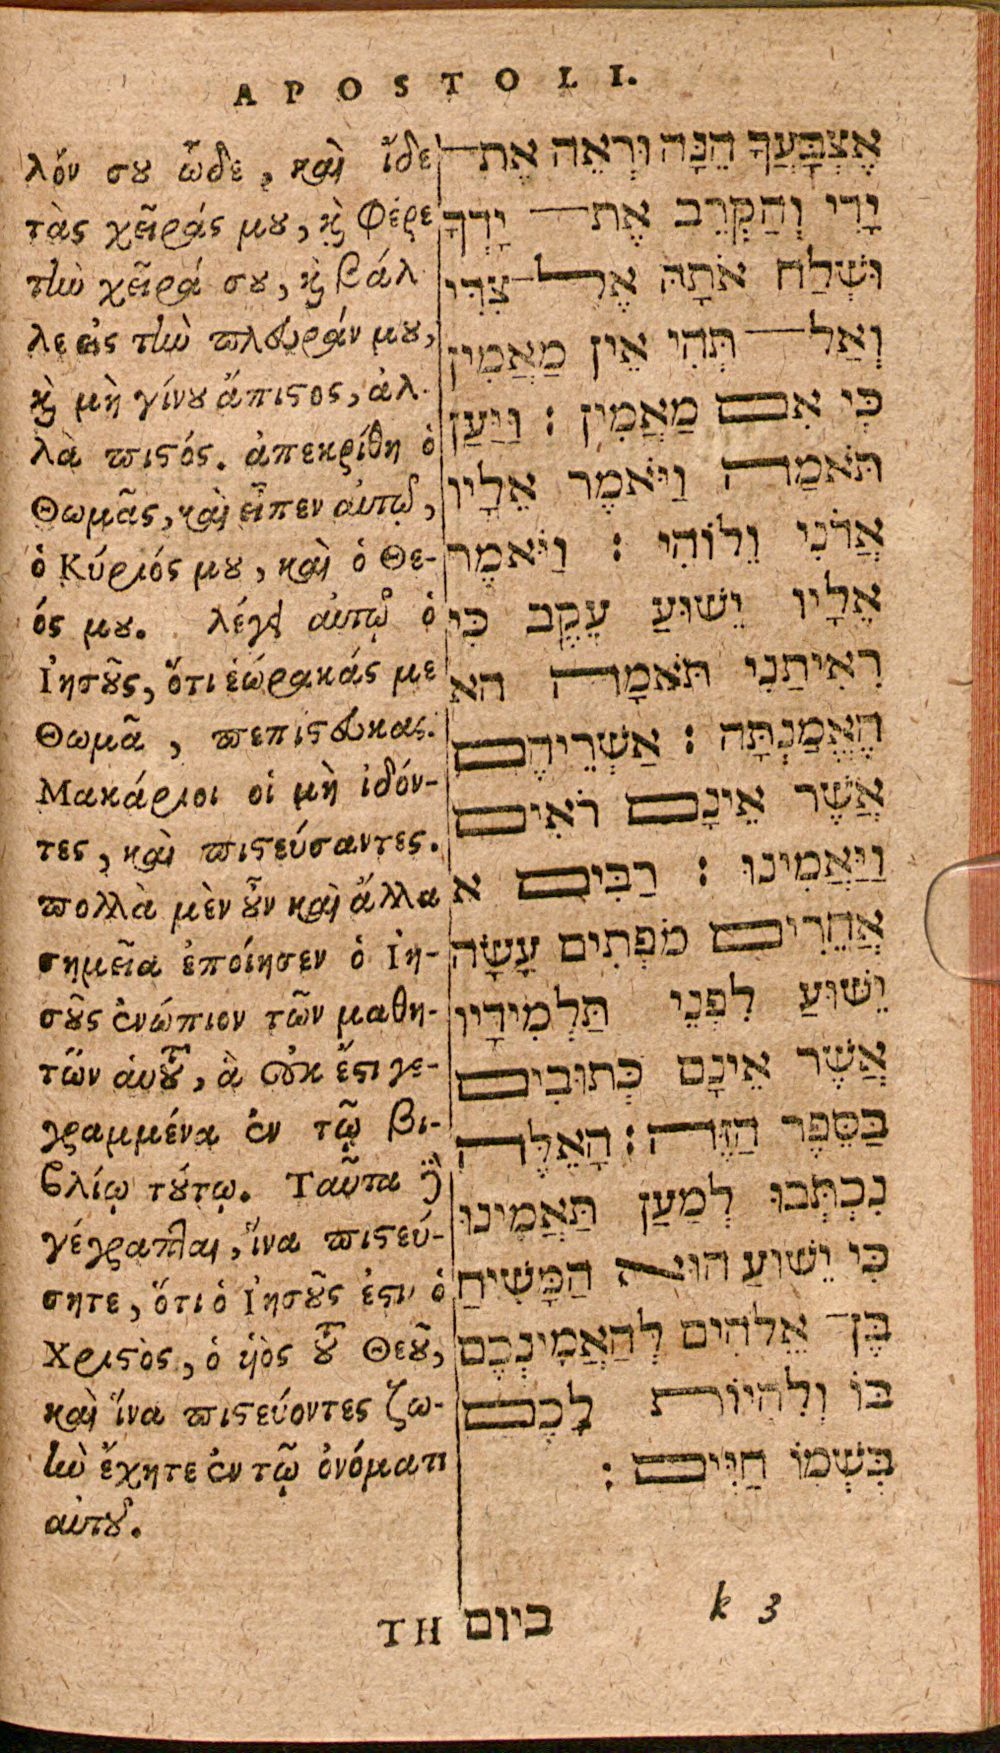 APOSTOLI.
λόν σου ὧδε, καὶ ἴδε
τὰς χεῖράς μου, καὶ φέρε
τὴν χεῖρά σου, καὶ βάλ
λε εἰς τὴν πλευράν μου,
καὶ μὴ γίνου ἄπιστος, ἀλ-
λὰ πιστός. ἀπεκρίθη ὁ
Θωμᾶς, καὶ εἶπεν αὐτῷ,
ὁ Κύριός μου, καὶ ὁ Θε-
ός μου. λέγει αὐτῷ ὁ
Ἰησοῦς, ὅτι ἑώρακάς με
Θωμᾶ, πεπίστευκας.
Μακάριοι οἱ μὴ ἰδόν-
τες, καὶ πιστεύσαντες.
πολλὰ μὲν οὖν καὶ ἄλλα
σημεῖα ἐποίησεν ὁ Ἰη-
σοῦς ἐνώπιον τῶν μαθη-
τῶν αὑτοῦ, ἃ οὐκ ἔστι γε-
γραμμένα ἐν τῷ βι-
βλίῳ τούτῳ. Ταῦτα δὲ
γέγραπται, ἵνα πιστεύ-
σητε, ὅτι ὁ Ἰησοῦς ἐστιν ὁ
Χριστὸς, ὁ υἱὸς τοῦ Θεοῦ,
καὶ ἵνα πιστεύοντες ζω-
ὴν ἔχητε ἐν τῷ ὀνόματι
αὐτοῦ.
אֶצְבָּעֲךָ הֵנָּה וּרְאֵה אֶת־
יָדִי וְהַקְרֵב אֶת־ יָדְךָ
וּשְׁלַח אֹתָהּ אֶל־צִדִּי
וְאַל־ תְּהִי אֵין מַאֲמִין
כִּי אִם מַאֲמִין : וַיַּעַן
תֹּאמַה וַיֹּאמֶר אֵלָיו
אֲדֹנִי וֵלוֹהִי : וַיֹּאמֶר
אֵלָיו יֵשׁוּעַ עֵקֶב כִּי
רְאִיתַנִי תֹּאמָה הא
הֶאֱמַנְתָּה : אַשְׁרֵיהֶם
אֲשֶׁר אֵינָם רֹאִים
וַיַּאֲמִינוּ : רַבִּים א
אֲחֵרִים מֹפְתִים עָשָׂה
יֵשׁוּעַ לִפְנֵי תַּלְמִידָיו
אֲשֶׁר אֵינָם כְּתוּבִים
בַּסֵּפֶר הַזֶּה : הָאֵלֶּה
נִכְתְּבוּ לְמַעַן תַּאֲמִינוּ
כִּי יֵשׁוּעַ הוּא הַמָּשִׁיחַ
בֶּן־ אֱלֹהִים לְהַאֲמִינְכֶם
בּוֹ וְלִהְיוֹת לָכֶם
בִּשְׁמוֹ חַיִּים :
ΤΗ ביום k 3